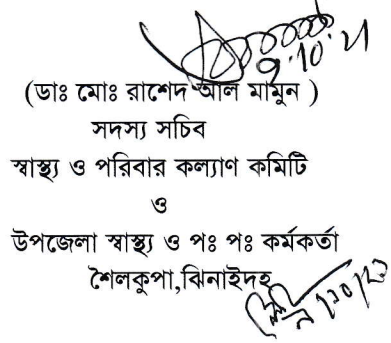 9.10.21
(ডাঃ মোঃ রাশেদ আল মামুন )
সদস্য সচিব
স্বাস্থ্য ও পরিবার কল্যাণ কমিটি
ও
উপজেলা স্বাস্থ্য ও পঃ পঃ কর্মকর্তা
শৈলকুপা,ঝিনাইদহ